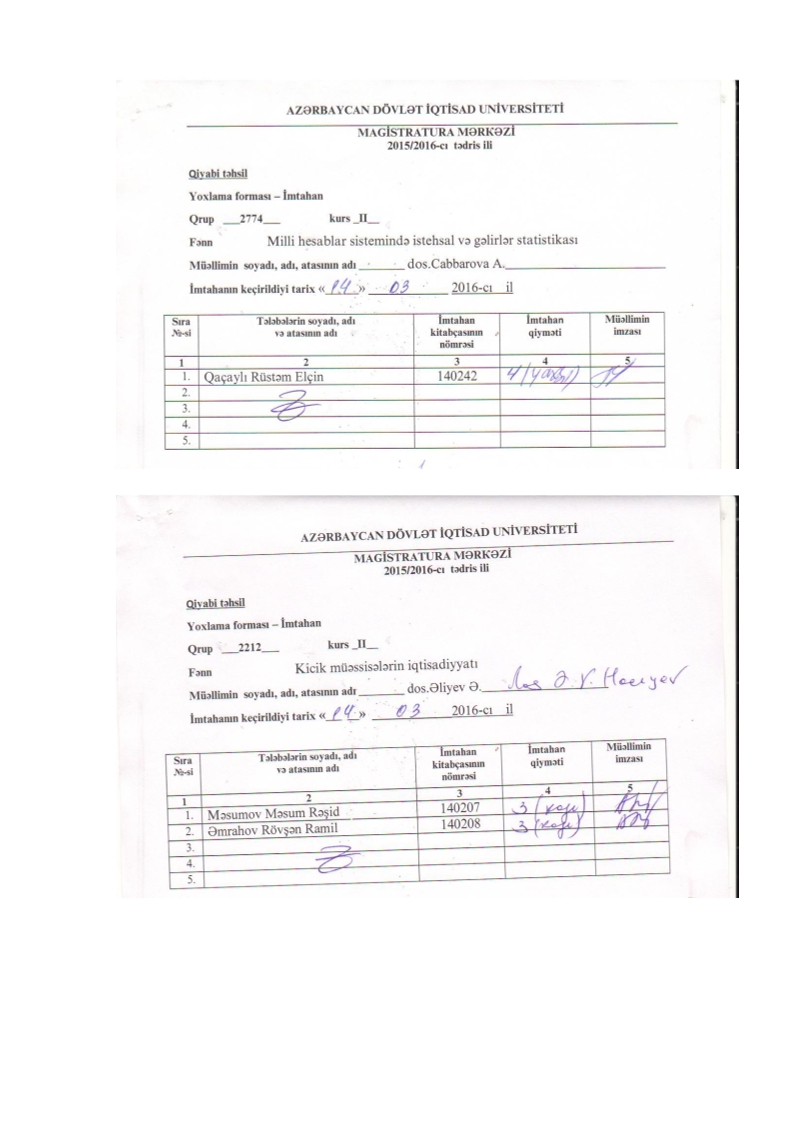 AZƏRBAYCAN DÖVLƏT İQTİSAD UNİVERSİTETİ
MAGİSTRATURA MƏRKƏZİ
2015/2016-cı tədris ili
Qiyabi təhsil
Yoxlama forması – İmtahan
Qrup ___2774___ kurs _II__
Fənn Milli hesablar sistemində istehsal və gəlirlər statistikası
Müəllimin soyadı, adı, atasının adı ________ dos.Cabbarova A.
İmtahanın keçirildiyi tarix «14» 03 2016-cı il
Sıra №-si Tələbələrin soyadı, adı və atasının adı İmtahan kitabçasının nömrəsi İmtahan qiyməti Müəllimin imzası
1 2 3 4 5
1. Qaçaylı Rüstəm Elçin 140242 4 (yaxşı)
2.
3.
4.
5.
AZƏRBAYCAN DÖVLƏT İQTİSAD UNİVERSİTETİ
MAGİSTRATURA MƏRKƏZİ
2015/2016-cı tədris ili
Qiyabi təhsil
Yoxlama forması – İmtahan
Qrup ___2212___ kurs _II__
Fənn Kicik müəssisələrin iqtisadiyyatı
Müəllimin soyadı, adı, atasının adı ________ dos.Əliyev Ə.
İmtahanın keçirildiyi tarix «14» 03 2016-cı il
Sıra №-si Tələbələrin soyadı, adı və atasının adı İmtahan kitabçasının nömrəsi İmtahan qiyməti Müəllimin imzası
1 2 3 4 5
1. Məsumov Məsum Rəşid 140207 3 (kafi)
2. Əmrahov Rövşən Ramil 140208 3 (kafi)
3.
4.
5.